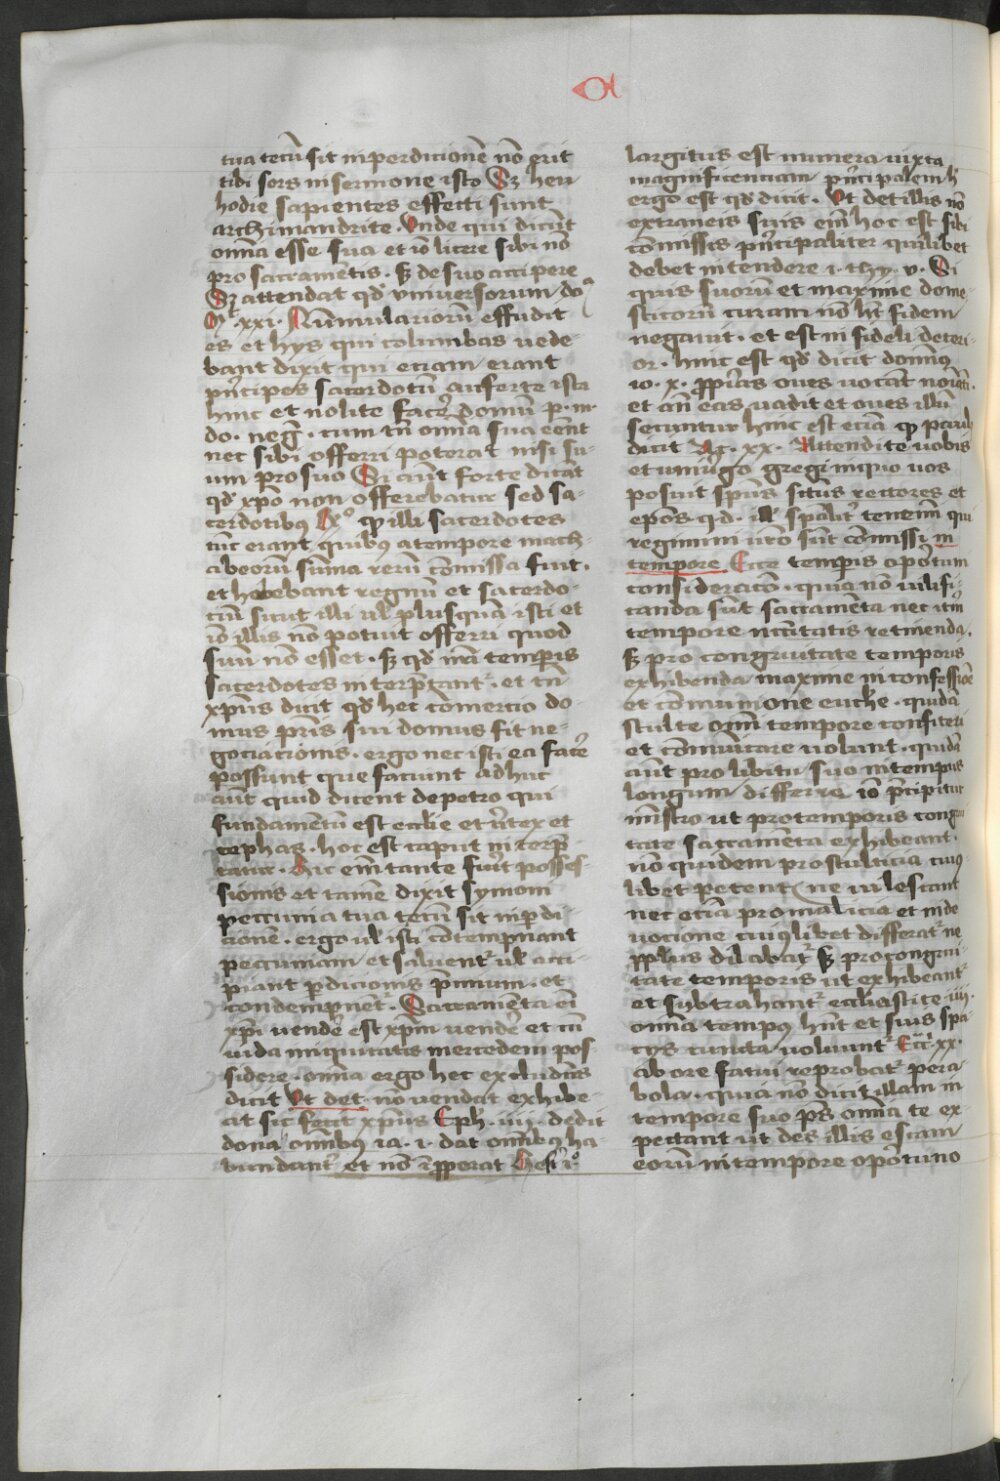 a
tua tecū sit in perdicionē nō erit
tibi sors in sermone isto Sꝫ heu
hodie sapientes effecti sunt
archimandrite. Unde qui dicūt
om̄ia esse sua et iō licere sibi nō
pro sacramētis. sꝫ de suo accipere
Sꝫ attendat qd̓ vniuersorum do
Mᵗ. xxi. Nūmulariorū effudit
es et hys qui columbas uede-
bant dixit qui eciam erant
pn̓cipes sacerdotū auferte ista
hinc et nolite facēr domū p. m.
do. neg̅. cum tn̄ om̄ia sua eēnt
nec sibi offerri poterat nisi su-
um pro suo Si aūt forte dicat
qd̓ xp̄o non offerebatur sed sa-
cerdotibꝰ Rº ꝙ illi sacerdotes
tūc erant quibꝰ a tempore mach-
abeorū sūma rerū cōmissa fuit.
et hebebant regnū et sacerdo-
ciū sicut illi ul̓ plusquā isti et
iō illis nō potuit offerri quod
suū nō esset. sꝫ qd̓ in̄a tempꝰis
sacerdotes interp̄tant̓. et tn̄
xp̄us dicit qd̓ hec cōmercio do-
mus pr̄is sui domus fit ne-
gociacionis. ergo nec isti ea facēr
possunt que faciunt adhuc
aūt quid dicent de petro qui
fundamentū est ecclīe et u̓tex et
cephas. hoc est caput interp̄-
tatur. hic em̄ tante fuīt posses-
sionis et tamē dixit symoni
peccunia tua tecū sit in ꝑdi-
cionē. ergo ul̓ isti cōtempnant
peccuniam et saluent̓ ul̓ acci-
piant ꝑdicionis p̄mium. et
condempnet̓. Sacramēta em̄
xp̄i vendēr est xp̄m vendēr et cū
iuda iniquitatis mercedem pos-
sidere. om̄ia ergo hec excludēns
dicit Ut det. nō vendat exhibe-
at sic fecit xp̄us Eph. iiij. dedit
dona om̄ibꝰ ia. i. dat om̄ibꝰ ha-
bundant̓ et nō īpꝑerat Hest̓ iº
largitus est munera iuxta
magnificenciam pn̓cipalem h
ergo est qd̓ dicit. Ut det illis nō
extraneis suis em̄ hoc est sibi
cōmissis pn̓cipaliter quilibet
debet intendere i. thy. v. Si
quis suorū et maxime dome-
sticorū curam nō ht̄ fidem
negauit. et est infideli deteri-
or. hinc est qd̓ dicit domīꝰ
io. x. ꝓpͥas oues uocāt noīatī.
et an̄ eas uadit et oues illū
secuntur hinc est eciā ꝙ paul
dicit Ac. xx. Attendite uobis
et uniu̓so gregi in quo uos
posuit sp̄us sc̄tus rectores et
ep̄os qd̓. ill sp̄alit̓ tenem̄ qui
regimini uro sūt cōmissi in
tempore Ecce tempꝰis apo̓tum
consideracōn. quia nō uilifi-
canda sūt sacramēta nec itm̄
tempore nccītatis retinenda.
sꝫ pro congruitate temporis
exhibenda maxime in confessiōe
et cōmunione euckē. quidā
stulte om̄i tempore confiteri
et cōmuicare uolunt. quidā
aūt pro libitu suo in tempus
longum differre iō p̄cipitur
mīstro ut pro temporis congrui
tate sacramēta exhibeant.
nō quidem pro stulticia cuiꝰ-
libet petent̓ ne uilescant
nec eciā pro malicia et inde
uocione cuiꝰlibet differat̓ ne
ꝓplus dilabat̓ sꝫ pro congrui-
tate temporis ut exhibeant̓
et subtrahant̓ eccliastice iij.
om̄ia tempꝰ hn̄t et suis spa-
cys cuncta uoluunt̓ Ecc̄. xx.
ab ore fatui reprobat̓ para
bola. quia nō dicit illam in
tempore suo ps̄ om̄ia te ex-
pectant ut des illis escam
eorū in tempore opo̓tuno